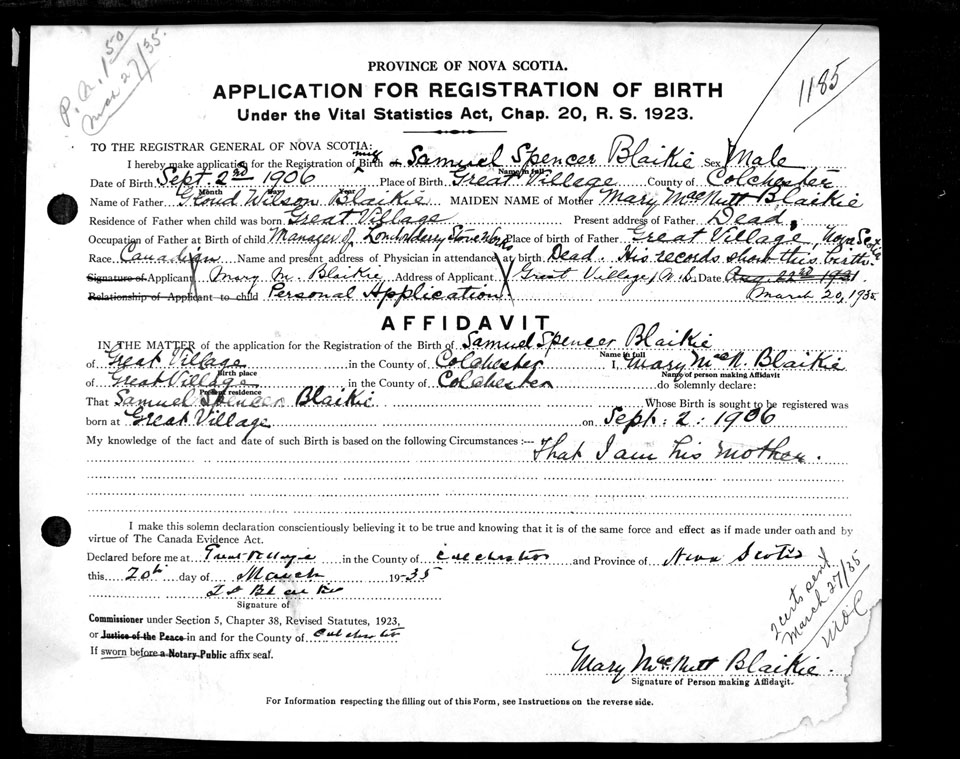 P. N. 1 50
March 27/35.
1185
PROVINCE OF NOVA SCOTIA.
APPLICATION FOR REGISTRATION OF BIRTH
Under the Vital Statistics Act, Chap. 20, R. S. 1923.
TO THE REGISTRAR GENERAL OF NOVA SCOTIA:
I hereby make application for the Registration of Birth of Samuel Spencer Blaikie Sex Male
Name in full
Date of Birth Sept. 2nd 1906 Place of Birth Great Village County of Colchester
Month Day Year
Name of Father Wilson Blaikie MAIDEN NAME of Mother Mary MacNutt Blaikie
Residence of Father when child was born Great Village Present address of Father Dead.
Occupation of Father at Birth of child Manager of Londonderry Stove Works Place of birth of Father Great Village, Nova Scotia
Race. Canadian Name and present address of Physician in attendance at birth Dead. His records show this birth.
Signature of Applicant Mary M. Blaikie Address of Applicant Great Village, N.S. Date Aug. 22nd 1931
March 20, 1935
Relationship of Applicant to child Personal Application.
AFFIDAVIT
IN THE MATTER of the application for the Registration of the Birth of Samuel Spencer Blaikie
Name in full
of Great Village in the County of Colchester I, Mary MacN. Blaikie
Birth place
Name of person making Affidavit
of Great Village in the County of Colchester do solemnly declare:
Present residence
That Samuel Spencer Blaikie Whose Birth is sought to be registered was
born at Great Village on Sept. 2. 1906
My knowledge of the fact and date of such Birth is based on the following Circumstances :--- That I am his mother.
I make this solemn declaration conscientiously believing it to be true and knowing that it is of the same force and effect as if made under oath and by
virtue of The Canada Evidence Act.
Declared before me at Great Village in the County of Colchester and Province of Nova Scotia
this 20th day of March 1935
Signature of
Commissioner under Section 5, Chapter 38, Revised Statutes, 1923,
or Justice of the Peace in and for the County of Colchester
If sworn before a Notary Public affix seal.
2 certs sent
March 27/35
McC
Mary MacNutt Blaikie.
Signature of Person making Affidavit.
For Information respecting the filling out of this Form, see Instructions on the reverse side.